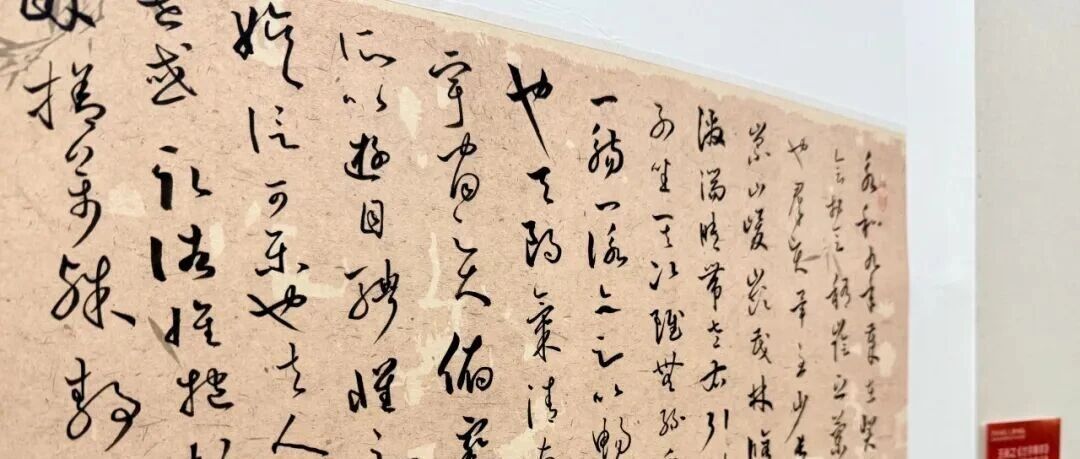 永和九年歲在癸
會於會稽陰之蘭
也羣賢畢至少長
崇山峻嶺茂林脩
激湍暎帶左右引
列坐其次雖無絲
一觴一詠亦足以暢
也天朗氣清
宇宙之大俯察
所以遊目騁懷足
娛信可樂也夫人
或取諸懷抱
捨萬殊靜